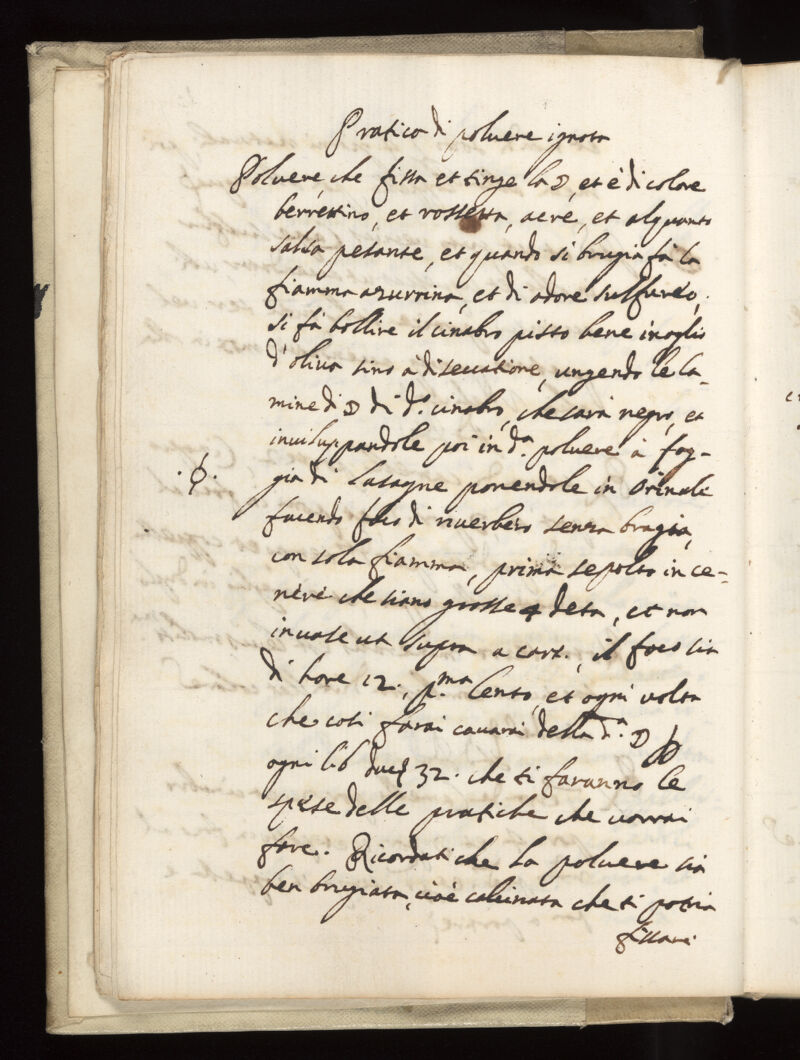 Pratica di poluere ignota
Poluere che fissa et tinge la ☽, et è di colore
berrettino, et rossetta, acre, et alquanto
salsa pesante, et quando si brugia fà la
fiamma azurrina, et di odore sulfureo,
si fà bollire il cinabro pisto bene in oglio
d'oliua sino à diseccatione, ungendo le la-
mine di ☽ di d.º cinabro, che sarà negro, et
inuiluppandole poi in d.ª poluere à fog-
gia di lasagne ponendole in orinale
facendo foco di riuerbero senza bragia,
con sola fiamma, prima sepolto in ce-
nere che siano grosse 4 deta, et non
in uase ut supra a cart., il foco sia
di hore 12., p.ma lento, et ogni uolta
che così farai cauarai della d.ª ☽
ogni lib duc 32. che ti faranno le
spese delle pratiche che uorrai
fare. Ricordati che la poluere sia
ben brugiata, cioè calcinata che ti potria
fissare